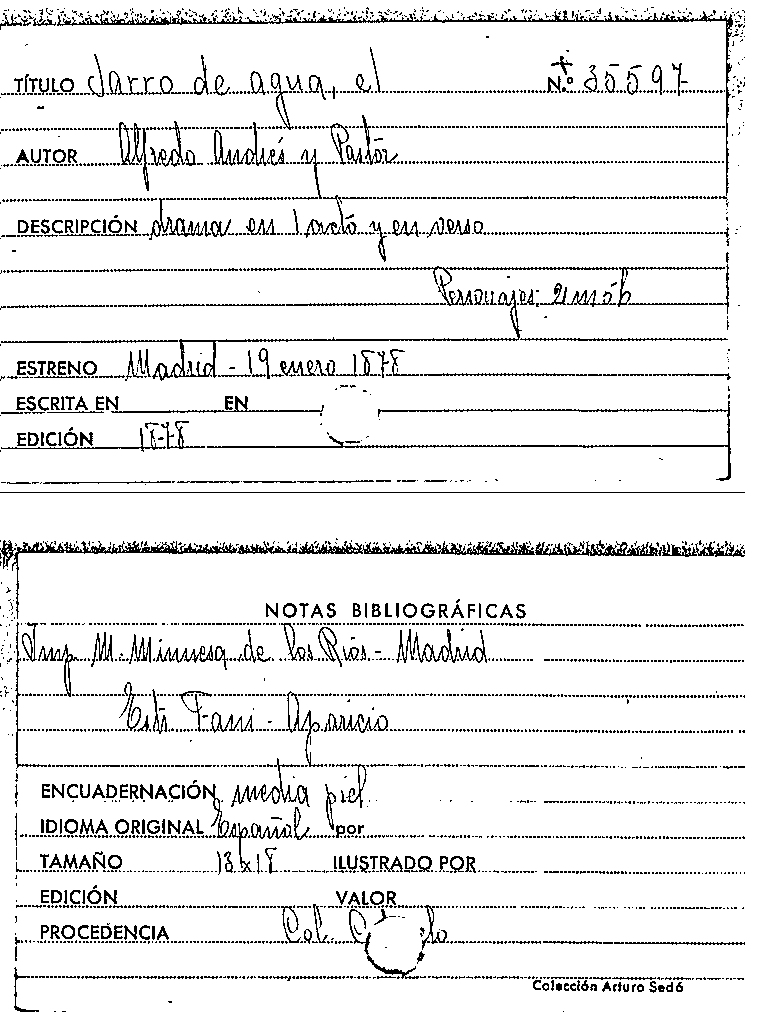 TÍTULO Jarro de agua, el N.º 35597
AUTOR Alfredo Andrés y Pastor
DESCRIPCIÓN drama en 1 acto y en verso
Personajes: 2 m 5 h
ESTRENO Madrid - 19 enero 1878
ESCRITA EN EN
EDICIÓN 1878
NOTAS BIBLIOGRÁFICAS
Imp. M. Minuesa de los Rios - Madrid
Fani - Aparicio
ENCUADERNACIÓN media piel
IDIOMA ORIGINAL Español por
TAMAÑO 13x18 ILUSTRADO POR
EDICIÓN VALOR
PROCEDENCIA Col.
Colección Arturo Sedó